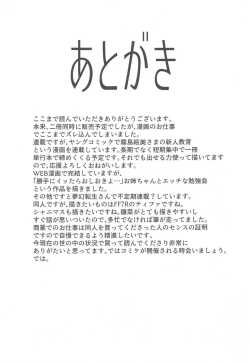 あとがき
ここまで読んでいただきありがとうございます。
本来、二冊同時に販売予定でしたが、漫画のお仕事
でここまでズレ込んでしまいました。
連載ですが、ヤングコミックで霧島絵美さまの新人教育
という漫画を連載しています。長期でなく短期集中で一冊
単行本で締めくくる予定です。それでも出せる力使って描いてます
ので、応援よろしくおねがいします。
WEB漫画で完結していますが、
「勝手にイッたらおしおきよ…」お姉ちゃんとエッチな勉強会
という作品を描きました。
その他ですと夢幻転生さんで不定期連載でしています。
同人ですが、描きたいものはFF7Rのティファですね。
シャニマスも描きたいですね、
すぐ話が思いついたので、多忙でなければ筆が走ってました。
商業でのお仕事は同人を買ってくださった人のセンスの証明
ですので自慢できるように精進したいです。
今現在の世の中の状況で買って読んでくださり非常に
ありがたいと思ってます、ではコミケが開催される時会いましょう。
では、